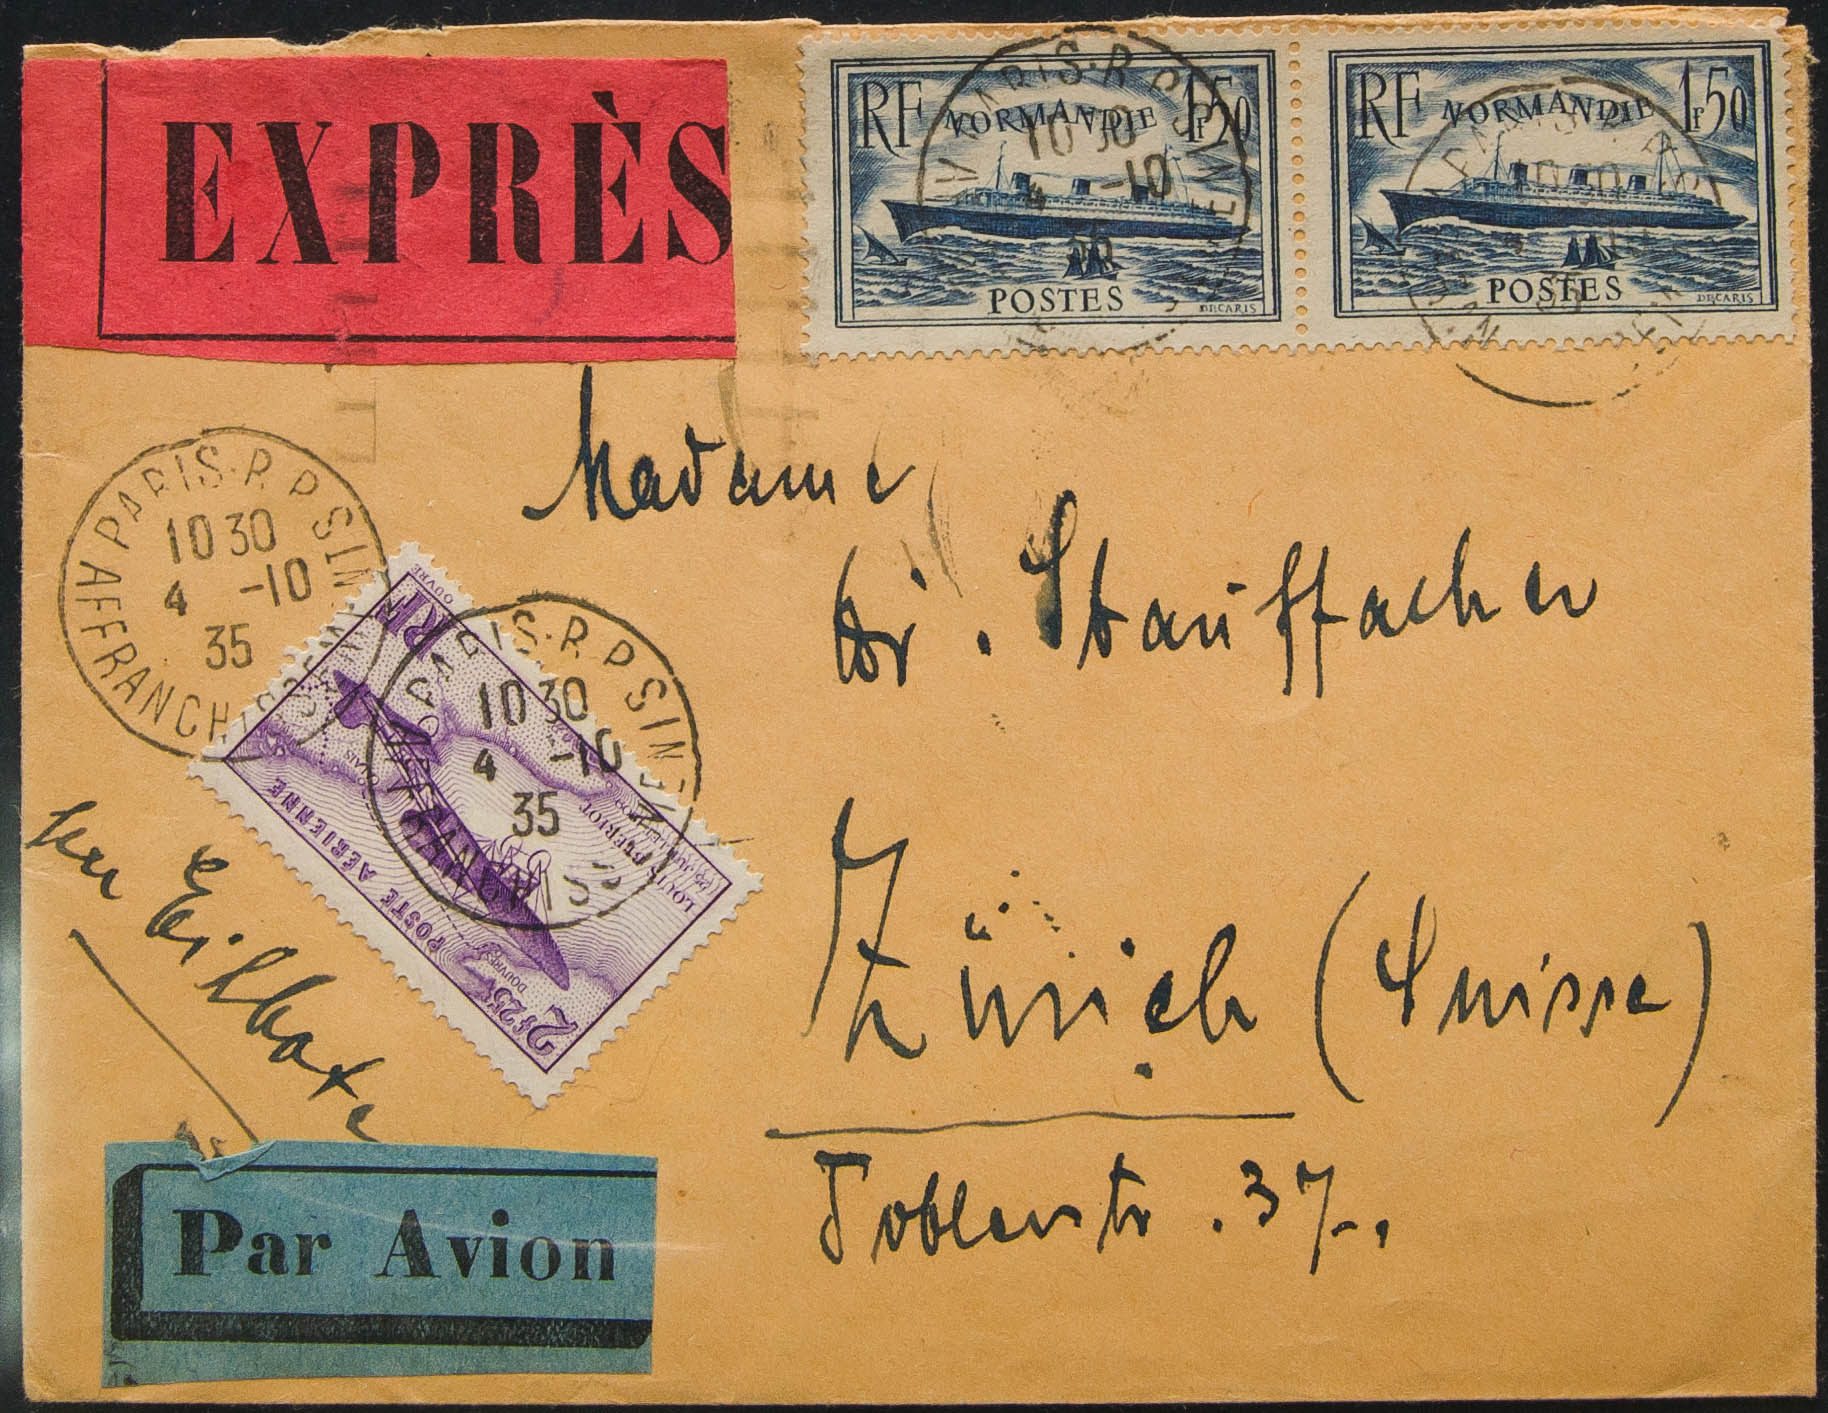 EXPRÈS
RF NORMANDIE 1F50
POSTES
DECARIS
RF NORMANDIE 1F50
POSTES
DECARIS
PARIS·R.P SIN
10 30
4 -10
35
AFFRANCH
Madame
Dr. Stauffacher
Zürich (Suisse)
Toblerstr. 37.
RF
OUVRE
POSTE AÉRIENNE
LOUIS BLÉRIOT
CALAIS
DOUVRES
2F25
PARIS·R.P SIN
10 30
4 -10
35
per Eilbote
Par Avion